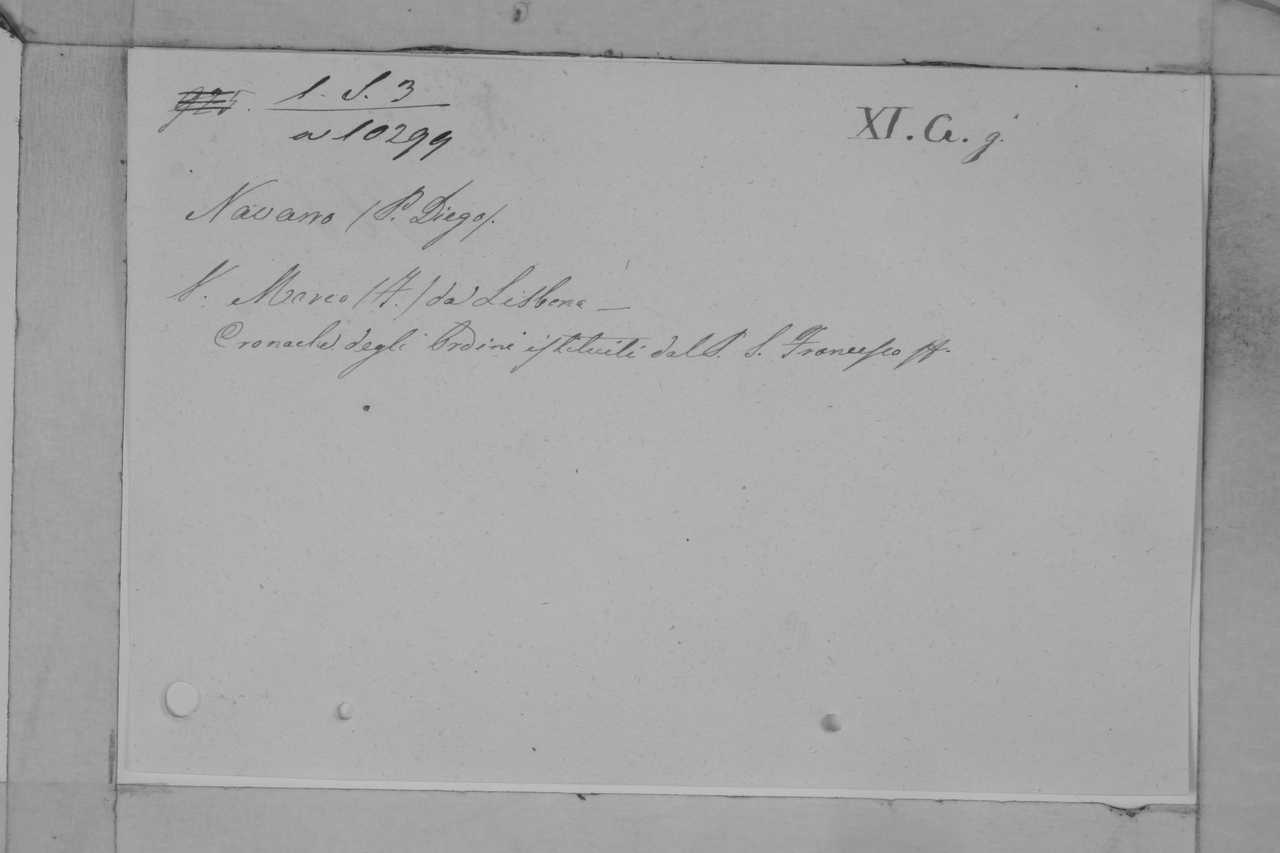 l. S. 3
a 10299
XI. G. g.
Navarro (P. Diego).
V. Marco (F.) da Lisbona —
Cronache degli Ordini istituiti dal P. S. Francesco